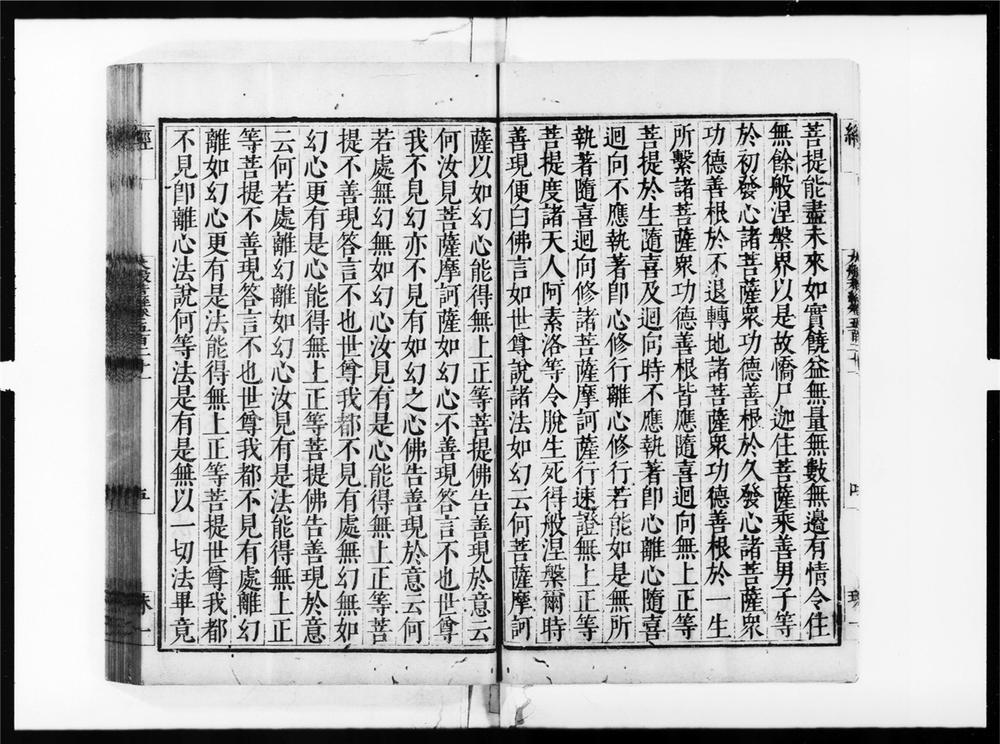 菩提能盡未來如實饒益無量無數無邊有情令住
無餘般涅槃界以是故憍尸迦住菩薩乘善男子等
於初發心諸菩薩衆功德善根於久發心諸菩薩衆
功德善根於不退轉地諸菩薩衆功德善根於一生
所繫諸菩薩衆功德善根皆應隨喜迴向無上正等
菩提於生隨喜及迴向時不應執著卽心離心隨喜
迴向不應執著卽心修行離心修行若能如是無所
執著隨喜迴向修諸菩薩摩訶薩行速證無上正等
菩提度諸天人阿素洛等令脫生死得般涅槃爾時
善現便白佛言如世尊說諸法如幻云何菩薩摩訶
薩以如幻心能得無上正等菩提佛告善現於意云
何汝見菩薩摩訶薩如幻心不善現答言不也世尊
我不見幻亦不見有如幻之心佛告善現於意云何
若處無幻無如幻心汝見有是心能得無上正等菩
提不善現答言不也世尊我都不見有處無幻無如
幻心更有是心能得無上正等菩提佛告善現於意
云何若處離幻離如幻心汝見有是法能得無上正
等菩提不善現答言不也世尊我都不見有處離幻
離如幻心更有是法能得無上正等菩提世尊我都
不見卽離心法說何等法是有是無以一切法畢竟
經